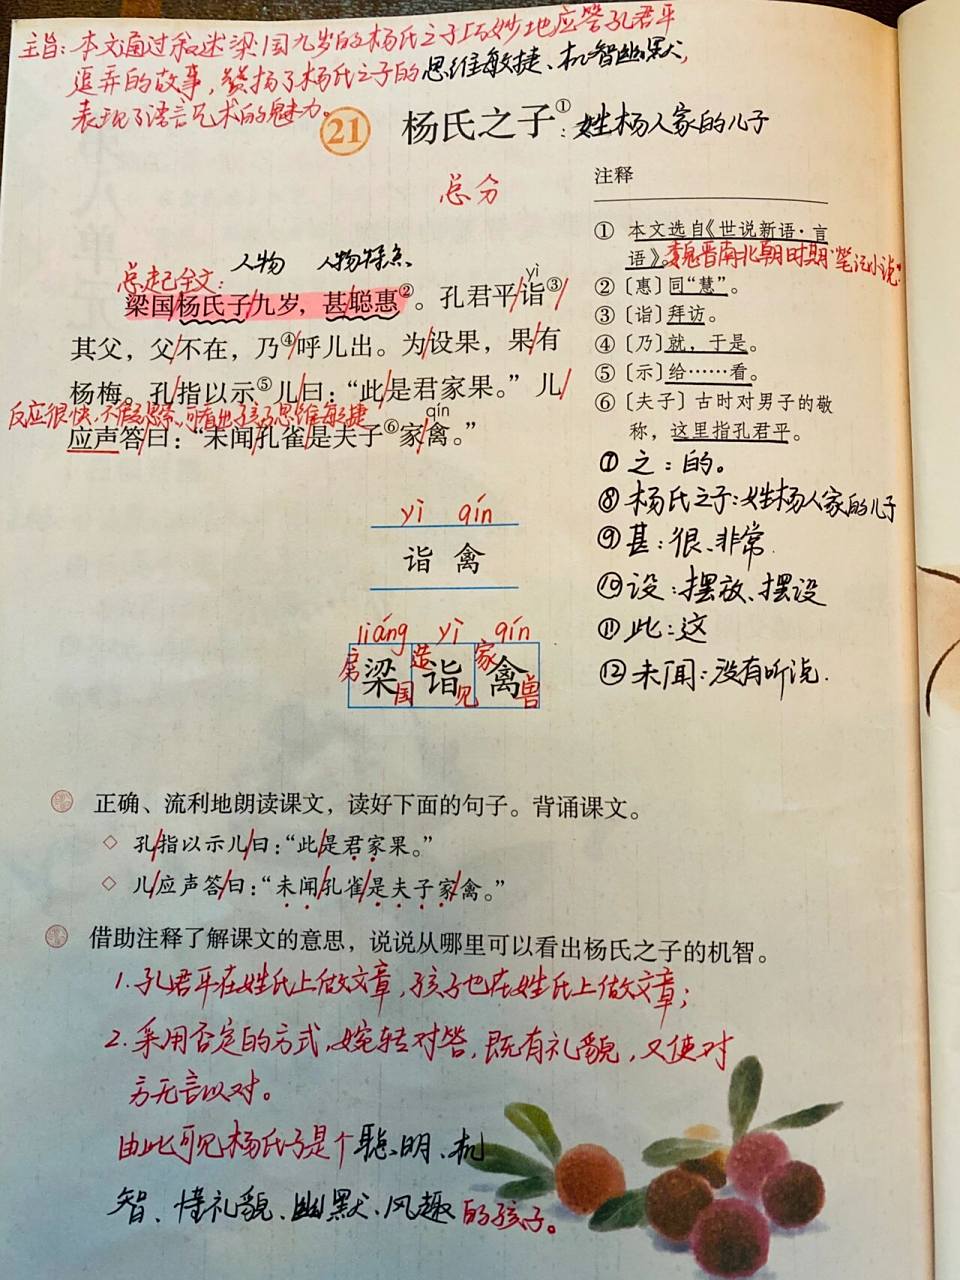 主旨：本文通过和述梁国九岁的杨氏之子巧妙地应答孔君平
逗弄的故事，赞扬了杨氏之子的思维敏捷、机智幽默，
表现了语言艺术的魅力。
21 杨氏之子①：姓杨人家的儿子
总分
总起全文： 人物 人物特点
yì
梁国/杨氏子/九岁，甚/聪惠②。孔君平/诣③/
其父，父/不在，乃④/呼儿出。为/设果，果/有
杨梅。孔/指以示⑤儿/曰：“此/是君家果。”儿/
反应很快，不假思索，可看出孩子思维敏捷
qín
应声答/曰：“未闻/孔雀/是夫子⑥家/禽。”
yì qín
诣 禽
liáng yì qín
梁 诣 禽
国 造 见 家 兽
注释
① 本文选自《世说新语·言
语》。魏晋南北朝时期“笔记小说”
② 〔惠〕同“慧”。
③ 〔诣〕拜访。
④ 〔乃〕就，于是。
⑤ 〔示〕给……看。
⑥ 〔夫子〕古时对男子的敬
称，这里指孔君平。
⑦ 之：的。
⑧ 杨氏之子：姓杨人家的儿子
⑨ 甚：很、非常.
⑩ 设：摆放、摆设
⑪ 此：这
⑫ 未闻：没有听说.
正确、流利地朗读课文，读好下面的句子。背诵课文。
◇ 孔/指以示儿/曰：“此/是君家果。”
◇ 儿/应声答/曰：“未闻/孔雀/是夫子家/禽。”
借助注释了解课文的意思，说说从哪里可以看出杨氏之子的机智。
1. 孔君平在姓氏上做文章，孩子也在姓氏上做文章；
2. 采用否定的方式，婉转对答，既有礼貌，又使对
方无言以对。
由此可见杨氏子是个聪明、机
智、懂礼貌、幽默、风趣的孩子。